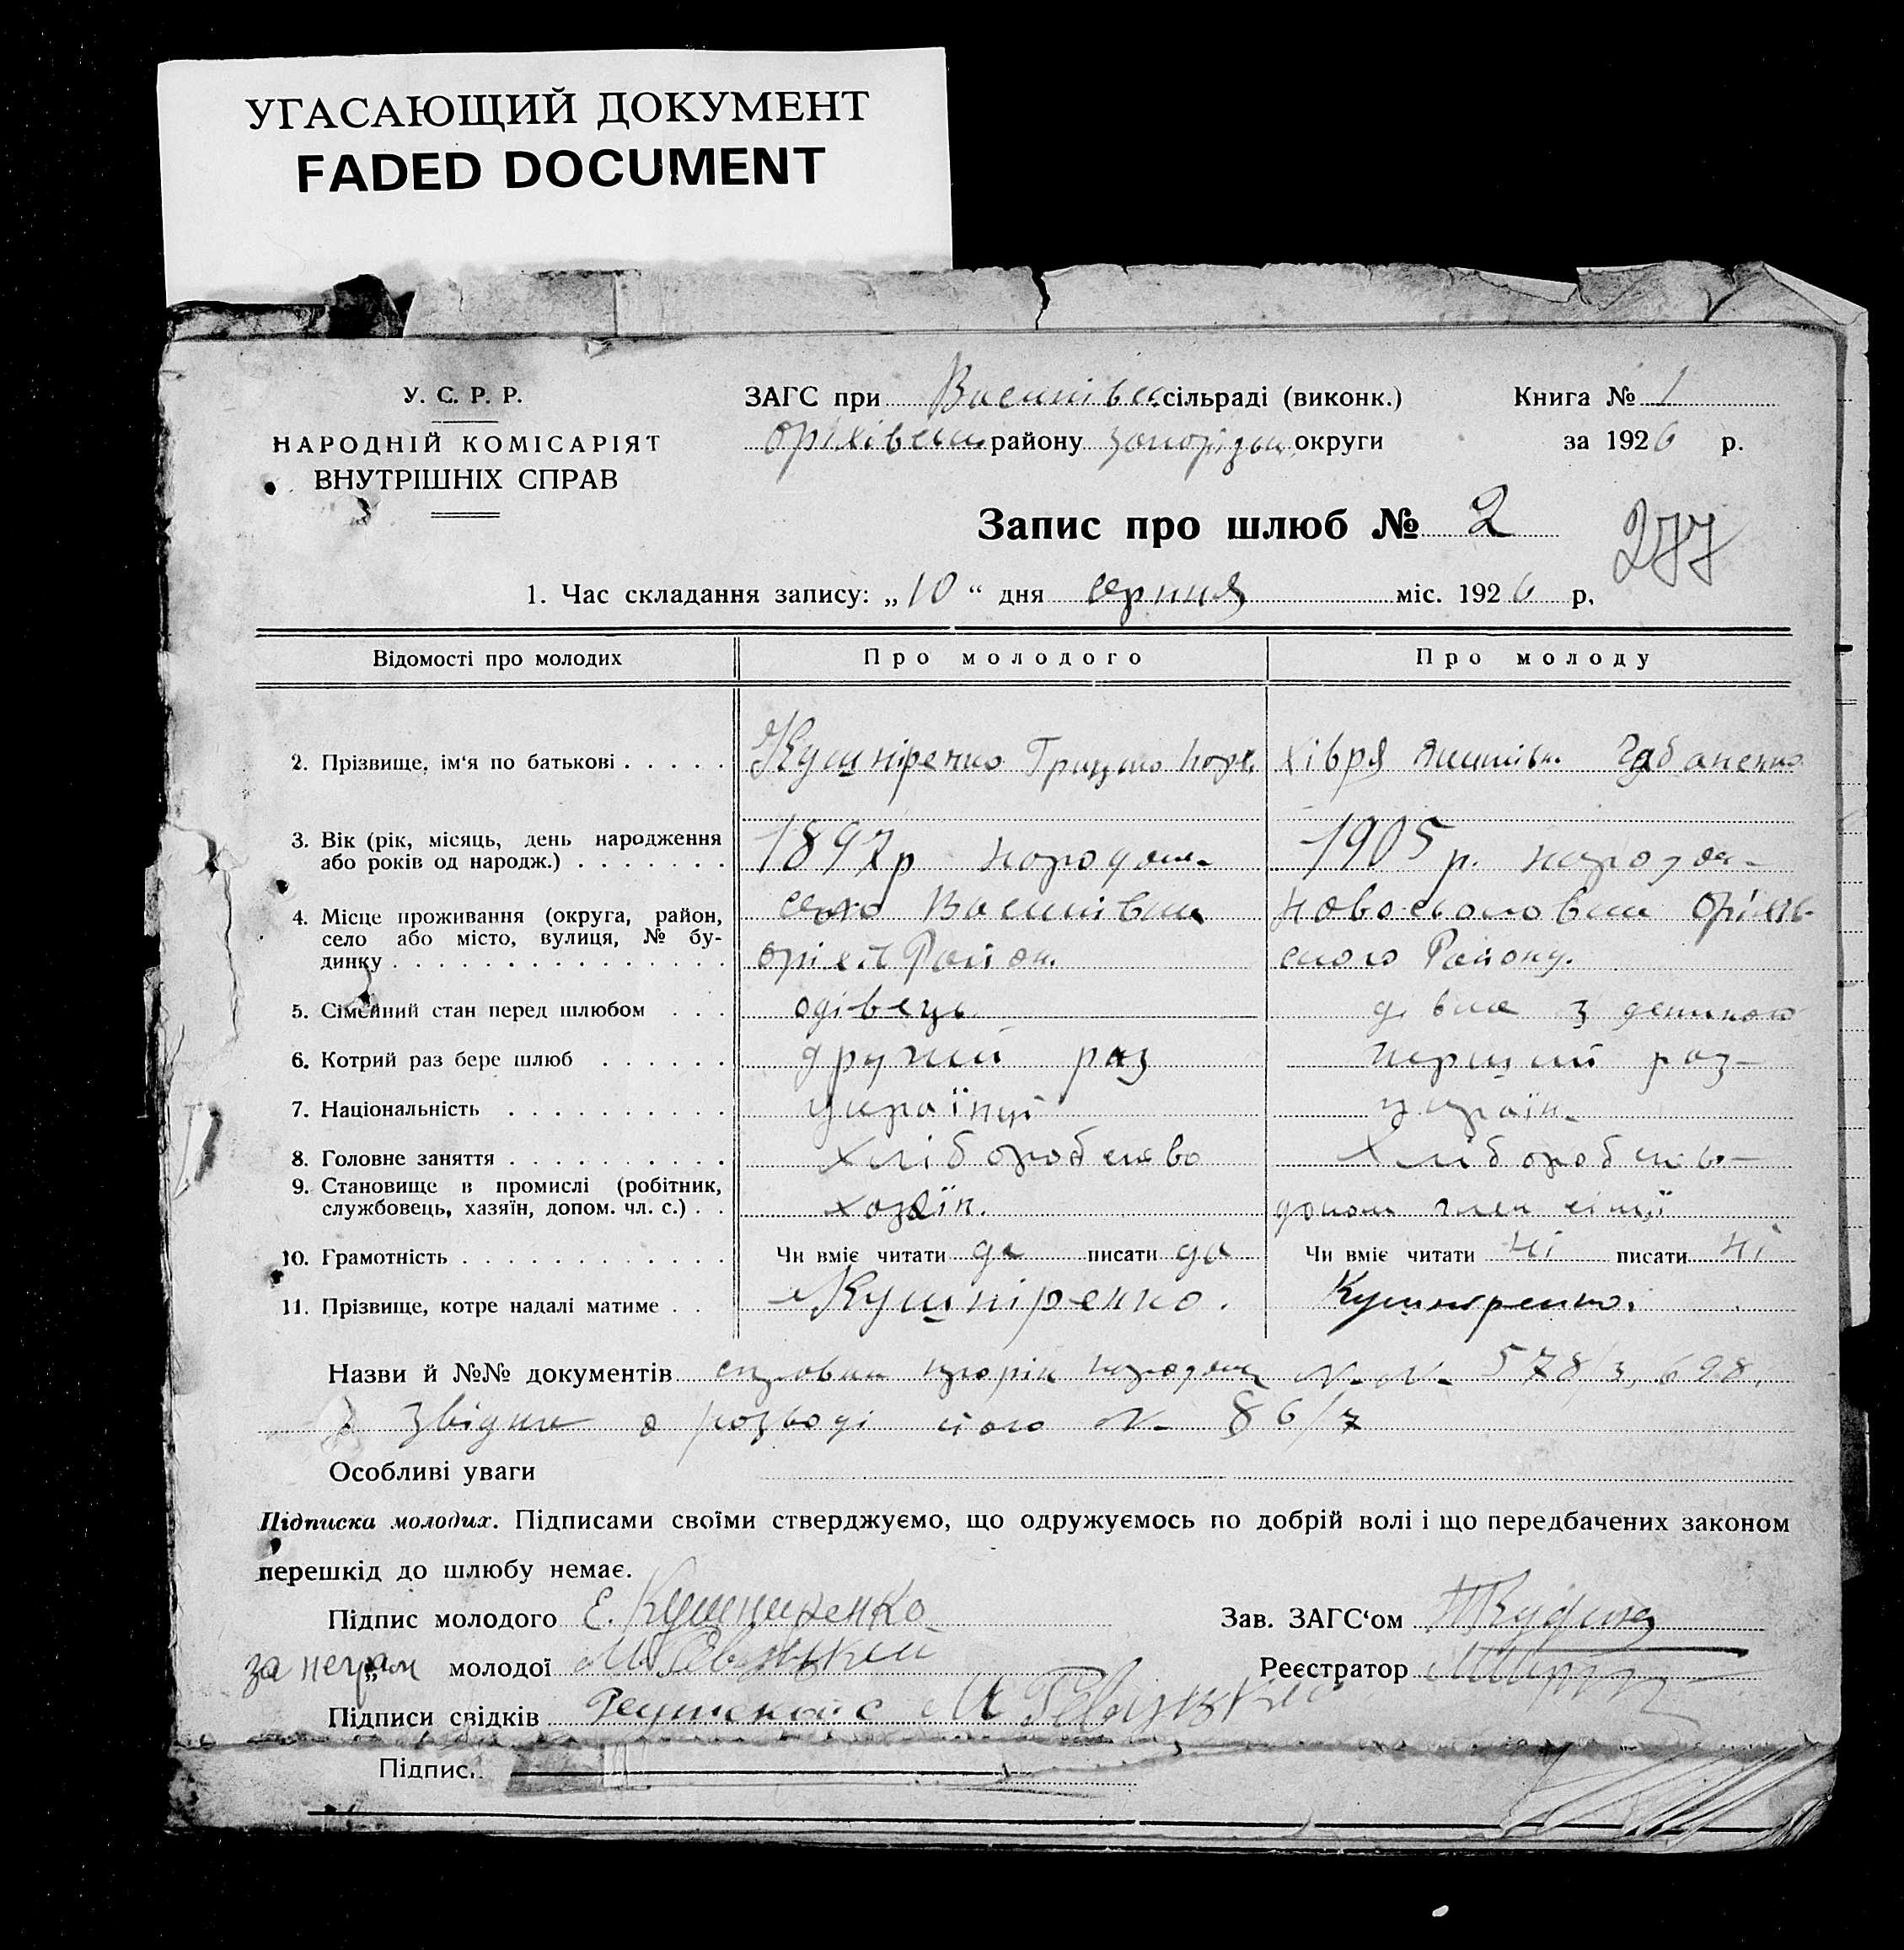 УГАСАЮЩИЙ ДОКУМЕНТ
FADED DOCUMENT
У. С. Р. Р.
НАРОДНІЙ КОМІСАРІЯТ
ВНУТРІШНІХ СПРАВ
ЗАГС при сільраді (виконк.)
району округи
Книга № 1
за 1926 р.
Запис про шлюб № 2
277
1. Час складання запису: „10“ дня серпня міс. 1926 р.
Відомості про молодих Про молодого Про молоду
2. Прізвище, ім‘я по батькові . . . . . Кушніренко Грицько Хівря Чабаненко
3. Вік (рік, місяць, день народження
або років од народж.) . . . . . . . 1897р 1905 р.
4. Місце проживання (округа, район, село Васинівка
село або місто, вулиця, № бу-
динку . . . . . . . . . . . . . . . Район. Району.
5. Сімейний стан перед шлюбом . . . одівець дівка з дитиною
6. Котрий раз бере шлюб . . . . . . другий раз перший раз
7. Національність . . . . . . . . . . українці україн.
8. Головне заняття . . . . . . . . . . хліборобство хліборобство
9. Становище в промислі (робітник,
службовець, хазяїн, допом. чл. с.) . . хазяїн. допом член сім'ї
10. Грамотність . . . . . . . . . . . . Чи вміє читати да писати да Чи вміє читати ні писати ні
11. Прізвище, котре надалі матиме . . Кушніренко. Кушніренко.
Назви й №№ документів 578/3, 698,
о розводі його № 86/7
Особливі уваги
Підписка молодих. Підписами своїми стверджуємо, що одружуємось по добрій волі і що передбачених законом
перешкід до шлюбу немає.
Підпис молодого Кушниренко
Зав. ЗАГС‘ом
за неграм „ молодої
Реєстратор
Підписи свідків
Підпис.